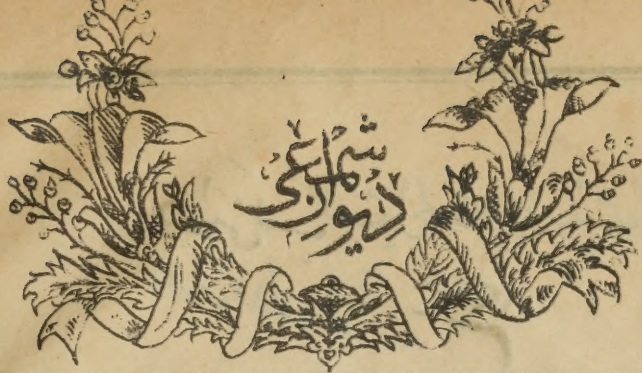 ديوان شمعى